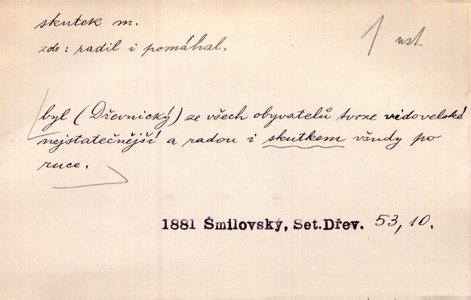 skutek m.
zde: radil i pomáhal.
1 ust.
byl (Dřevnický) ze všech obyvatelů tvrze vidovelské
nejstatečnější a radou i skutkem vždy po
ruce.
1881 Šmilovský, Set.Dřev. 53,10.